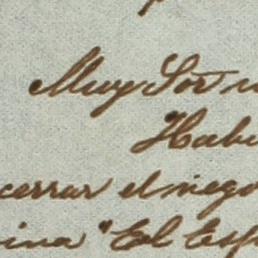 Muy Sor
Habi
cerrar el nego
ina "El Esp